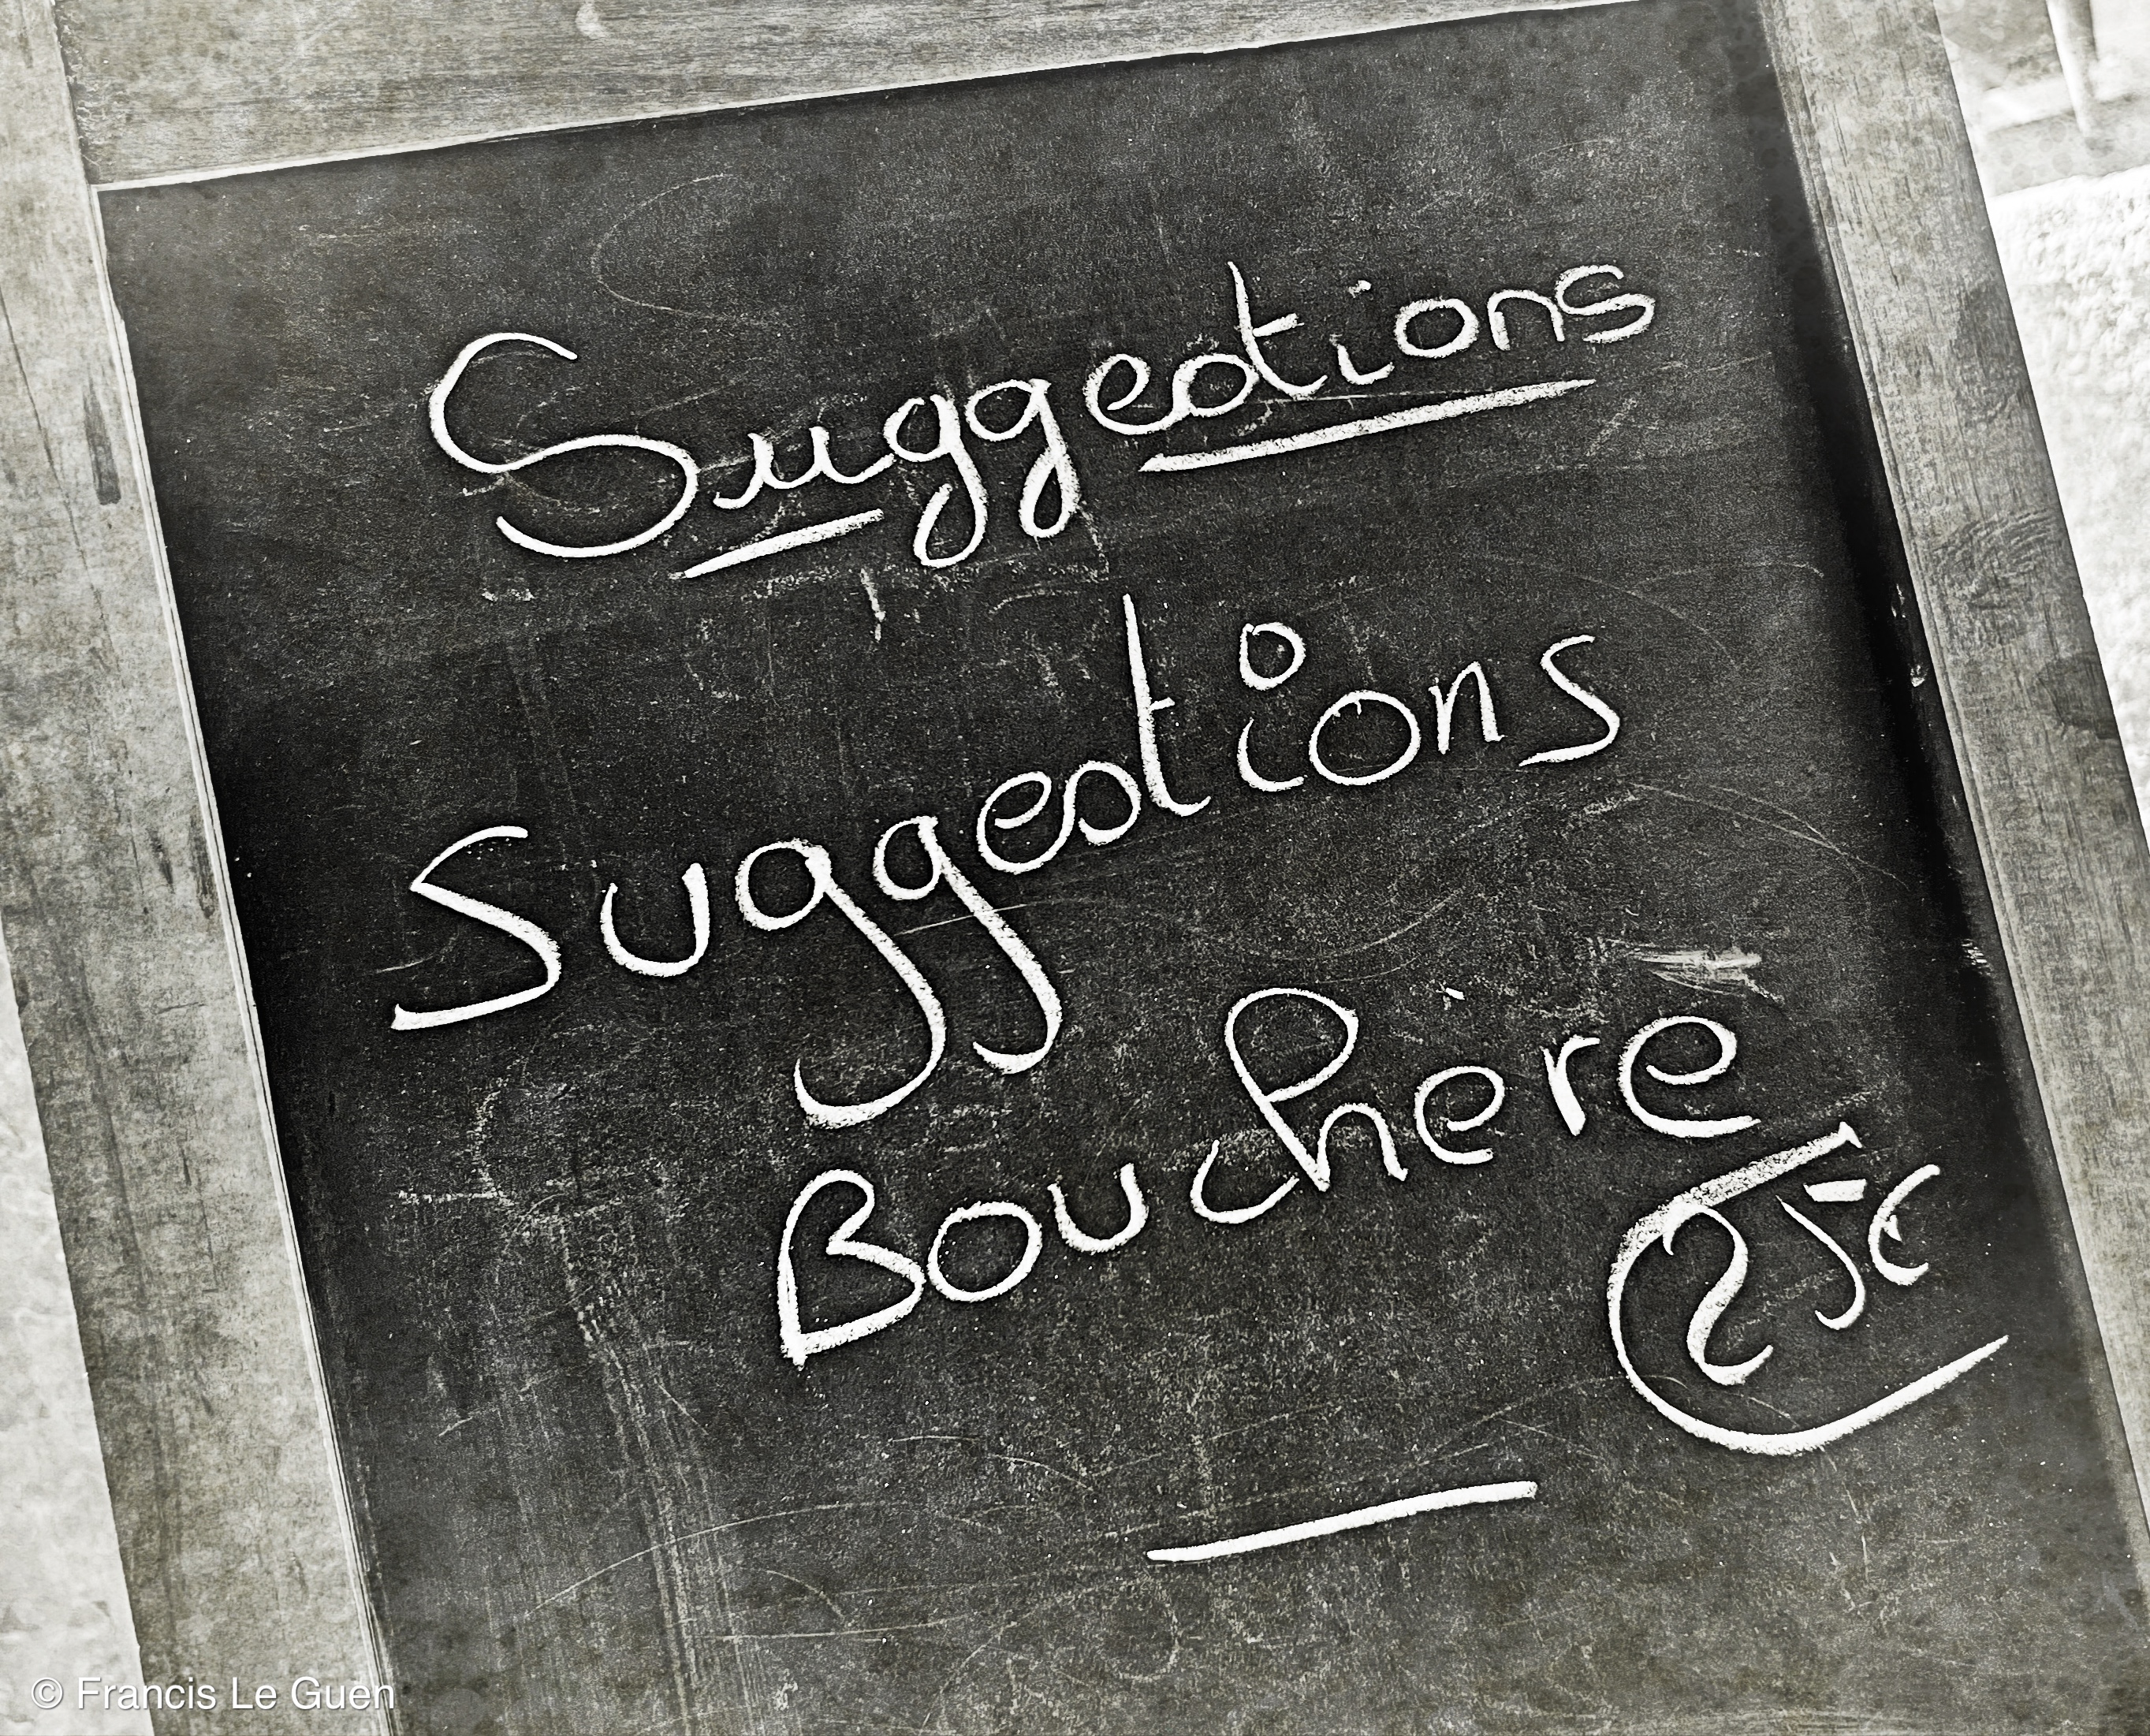 Suggestions
Suggestions
Bouchere
25€
© Francis Le Guen